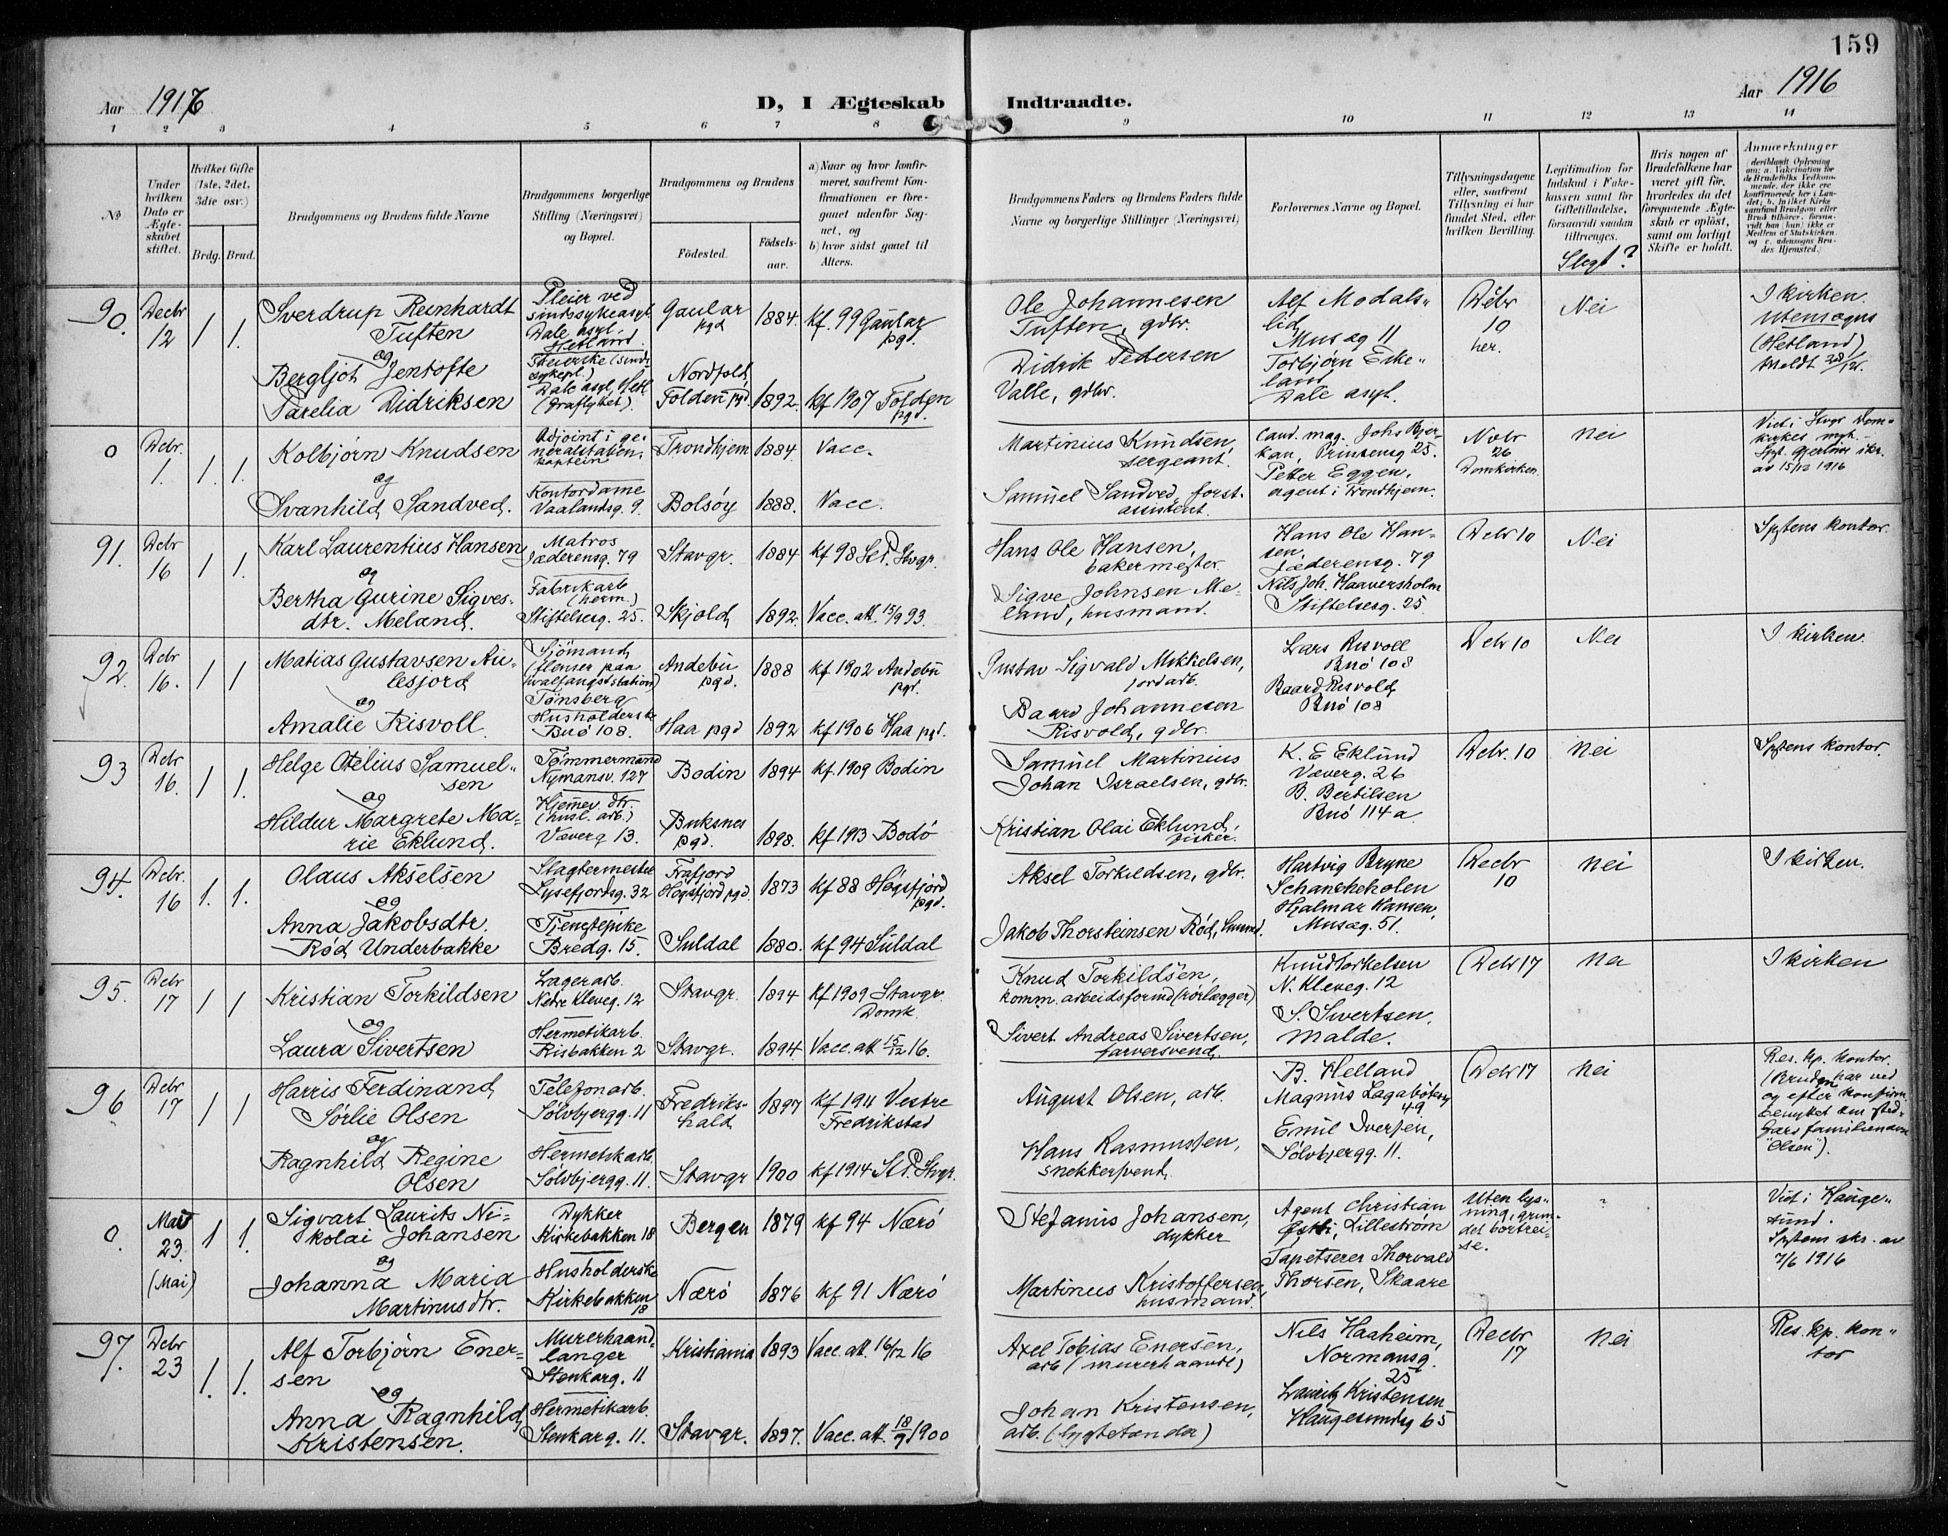 159
Aar 1916
D, I Ægteskab Indtraadte.
Aar 1916
1 2 3 4 5 6 7 8 9 10 11 12 13 14
No
Under hvilken Dato er Ægteskabet stiftet.
Hvilket Gifte (1ste, 2det, 3die osv.)
Brdg. Brud.
Brudgommens og Brudens fulde Navne
Brudgommens borgerlige Stilling (Næringsvei) og Bopæl.
Brudgommens og Brudens
Fødested.
Fødsels-aar.
a) Naar og hvor konfirmeret, saafremt Konfirmationen er foregaaet udenfor Sognet, og
b) hvor sidst gaaet til Alters.
Brudgommens Faders og Brudens Faders fulde Navne og borgerlige Stillinger (Næringsvei)
Forlovernes Navne og Bopæl.
Tillysningsdagene eller, saafremt Tillysning ei har fundet Sted, efter hvilken Bevilling.
Legitimation for Indskud i Enkekassen samt for Giftetilladelse, forsaavidt saadan tiltrænges.
Slegt?
Hvis nogen af Brudefolkene har været gift før, hvorledes da det foregaaende Ægteskab er opløst, samt om lovligt Skifte er holdt.
Anmærkninger
90. Decbr 12 1 1.
Sverdrup Reinhardt
Tuften
og
Bergljot Jentofte
Parelia Didriksen
Pleier ved
sindssykeasyl.
Dale asyl.
Hetland
Pleierske (sinds
sykepl.)
Dale asyl Hetl.
Gaular pgd 1884. kf 99 Gaular pgd.
Nordfold,
Folden pgd 1892. kf 1907 Folden pgd.
Ole Johannesen
Tuften, gdbr.
Didrik Pedersen
Valle, gdbr.
Alf Modals-
lid,
Musag 11
Torbjørn Eike-
land,
Dale asyl.
Dcbr
10
her.
Nei
I kirken.
Utensogns
(Hetland)
0 Dcbr. 1. 1. 1.
Kolbjørn Knudsen
og
Svanhild Sandved.
Adjoint i ge-
neralstaben,
kaptein
Kontordame
Vaalandsg. 9.
Trondhjem 1884. Vacc.
Bolsöy 1888. Vacc.
Martinius Knudsen,
sergeant.
Samuel Sandved, forst-
assistent.
Cand. mag. Johs Bjer-
kan, Prinsensg 25.
Petter Eggen,
agent i Trondhjem.
Novbr
26
Domkirken.
Nei
Viet i Stvgr Dom-
av 15/12 1916
91. Dcbr 16 1 1.
Karl Laurentius Hansen
og
Bertha Gurine Sigves-
dtr. Meland.
Matros
Jæderensg. 79
Fabrikarb
(herm.)
Stiftelsesg. 25.
Stavgr. 1884 kf 98 St P. Stvgr.
Skjold 1892. Vacc. att. 15/9 93.
Hans Ole Hansen,
bakermester
Sigve Johnsen Me-
land, husmand.
Hans Ole Han-
sen,
Jæderensg. 79
Nils Joh. Haaversholm
Stiftelsesg. 25
Dcbr 10
Nei
Sptens kontor.
92. Dcbr 16. 1 1
Matias Gustavsen Au-
lesjord
og
Amalie Risvoll.
Sjömand
(flenser paa
hvalfangststation)
Tönsberg
Husholderske
Buö 108.
Andebu pgd. 1888 kf 1902 Andebu pgd.
Haa pgd 1892 kf 1906 Haa pgd.
Gustav Sigvald Mikkelsen,
jordarb.
Baard Johannesen
Risvold, gdbr.
Lars Risvoll
Buö 108
Baard Risvold
Buö 108
Dcbr 10
Nei
I kirken.
93 Dcbr 16. 1 1.
Helge Otelius Samuel-
sen
og
Hildur Margrete Ma-
rie Eklund.
Tömmermand
Nymansv. 127
Hjemmev. dtr.
(husl. arb.)
Væverg 13.
Bodin 1894 kf 1909 Bodin
Buksnes pgd. 1898. kf 1913 Bodö
Samuel Martinius
Johan Israelsen, gdbr.
Kristian Olai Eklund,
fisker.
K. E Eklund
Væverg. 26
B. Bertilsen
Buö 114 a.
Dcbr. 10
Nei
Sptens kontor.
94. Dcbr. 16 1. 1.
Olaus Akselsen
og
Anna Jakobsdtr.
Röd Underbakke
Slagtermester
Lysefjordsg. 32
Tjenestepike
Bredg. 15.
Frafjord
Högsfjord pgd. 1873 kf 88 Högsfjord pgd.
Suldal 1880. kf 94 Suldal
Aksel Torkildsen, gdbr.
Jakob Thorsteinsen Röd,
Hartvig Bryne
Schancheholen
Hjalmar Hansen,
Musag. 51.
Decbr
10
Nei
I kirken.
95. Dcbr 17 1 1
Kristian Torkildsen
og
Laura Sivertsen
Lagerarb.
Nedre Kleveg. 12
Hermetikarb.
Risbakken 2
Stavgr. 1894 kf 1909 Stavgr. Domk.
Stavgr. 1894. Vacc. att 15/12 16.
Knud Torkildsen,
komm. arbeidsformd (rörlægger)
Sivert Andreas Sivertsen,
farversvend.
Knud Torkelsen
N. Kleveg. 12
S. Sivertsen.
Malde.
Dcbr 17
Nei
I kirken
96 Dcbr 17 1 1
Harris Ferdinand
Sørlie Olsen
og
Ragnhild Regine
Olsen
Telefonarb.
Sölvbjergg. 11
Hermetikarb.
Sölvbjergg. 11.
Fredriks-
hald 1897 kf 1911 Vestre
Fredrikstad
Stavgr 1900 kf 1914 St P. Stvgr.
August Olsen, arb.
Hans Rasmussen,
snekkersvend.
B. Helland
Magnus Lagabötersg
49
Emil Iversen,
Sölvbjergg. 11.
Dcbr 17
Nei
Res. kp. kontor.
(Bruden har ved
og efter konfirm.
benyttet som sted-
fars familienavn
"Olsen").
0. Mai 23 (Mai) 1 1.
Sigvart Laurits Ni-
kolai Johansen
og
Johanna Maria
Martinusdtr.
Dykker
Kirkebakken 18
Husholderske
Kirkebakken
18
Bergen 1879 kf 94 Nærö
Nærö 1876 kf 91 Nærö
Stefanus Johansen,
dykker
Martinus Kristoffersen,
husmand.
Agent Christian
Lilleström
Tapetserer Thorvald
Thorsen, Skaare
Uten lys-
ning, grun-
det bortrei-
se.
?
Viet i Hauge-
sund.
Sptens skr. av
7/6 1916
97. Dcbr 23 1. 1.
Alf Torbjørn Ener-
sen
og
Anna Ragnhild
Kristensen.
Murerhaand-
langer
Stenkarg. 11
Hermetikarb.
Stenkarg. 11.
Kristiania 1893 Vacc. att. 16/12 16
Stavgr. 1897. Vacc. att. 18/9 1900
Axel Tobias Enersen,
arb. (murerhaandl)
Johan Kristensen,
arb. (lygtetænder)
Nils Haaheim,
Normansg.
25
Lauritz Kristensen
Haugesundsg 65
Decbr
17
Nei
Res. kp. kon-
tor